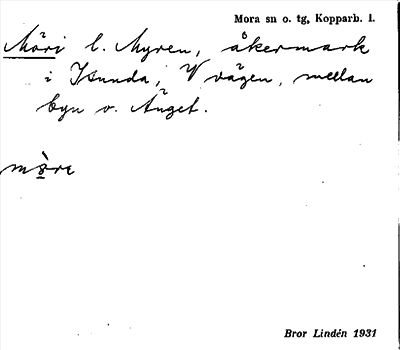 Mora sn o. tg, Kopparb. l.
Möri l. Myren, åkermark
i Isunda, V vägen, mellan
byn o. Änget.
mö̀re
Bror Lindén 1931